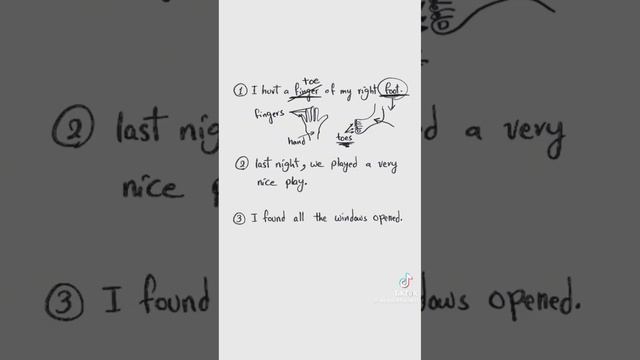 toe
① I hurt a finger of my right foot.
fingers
hand
toes
② last night, we played a very
nice play.
③ I found all the windows opened.
② last nig
d a very
nice
③ I found
dows opened.
TikTok